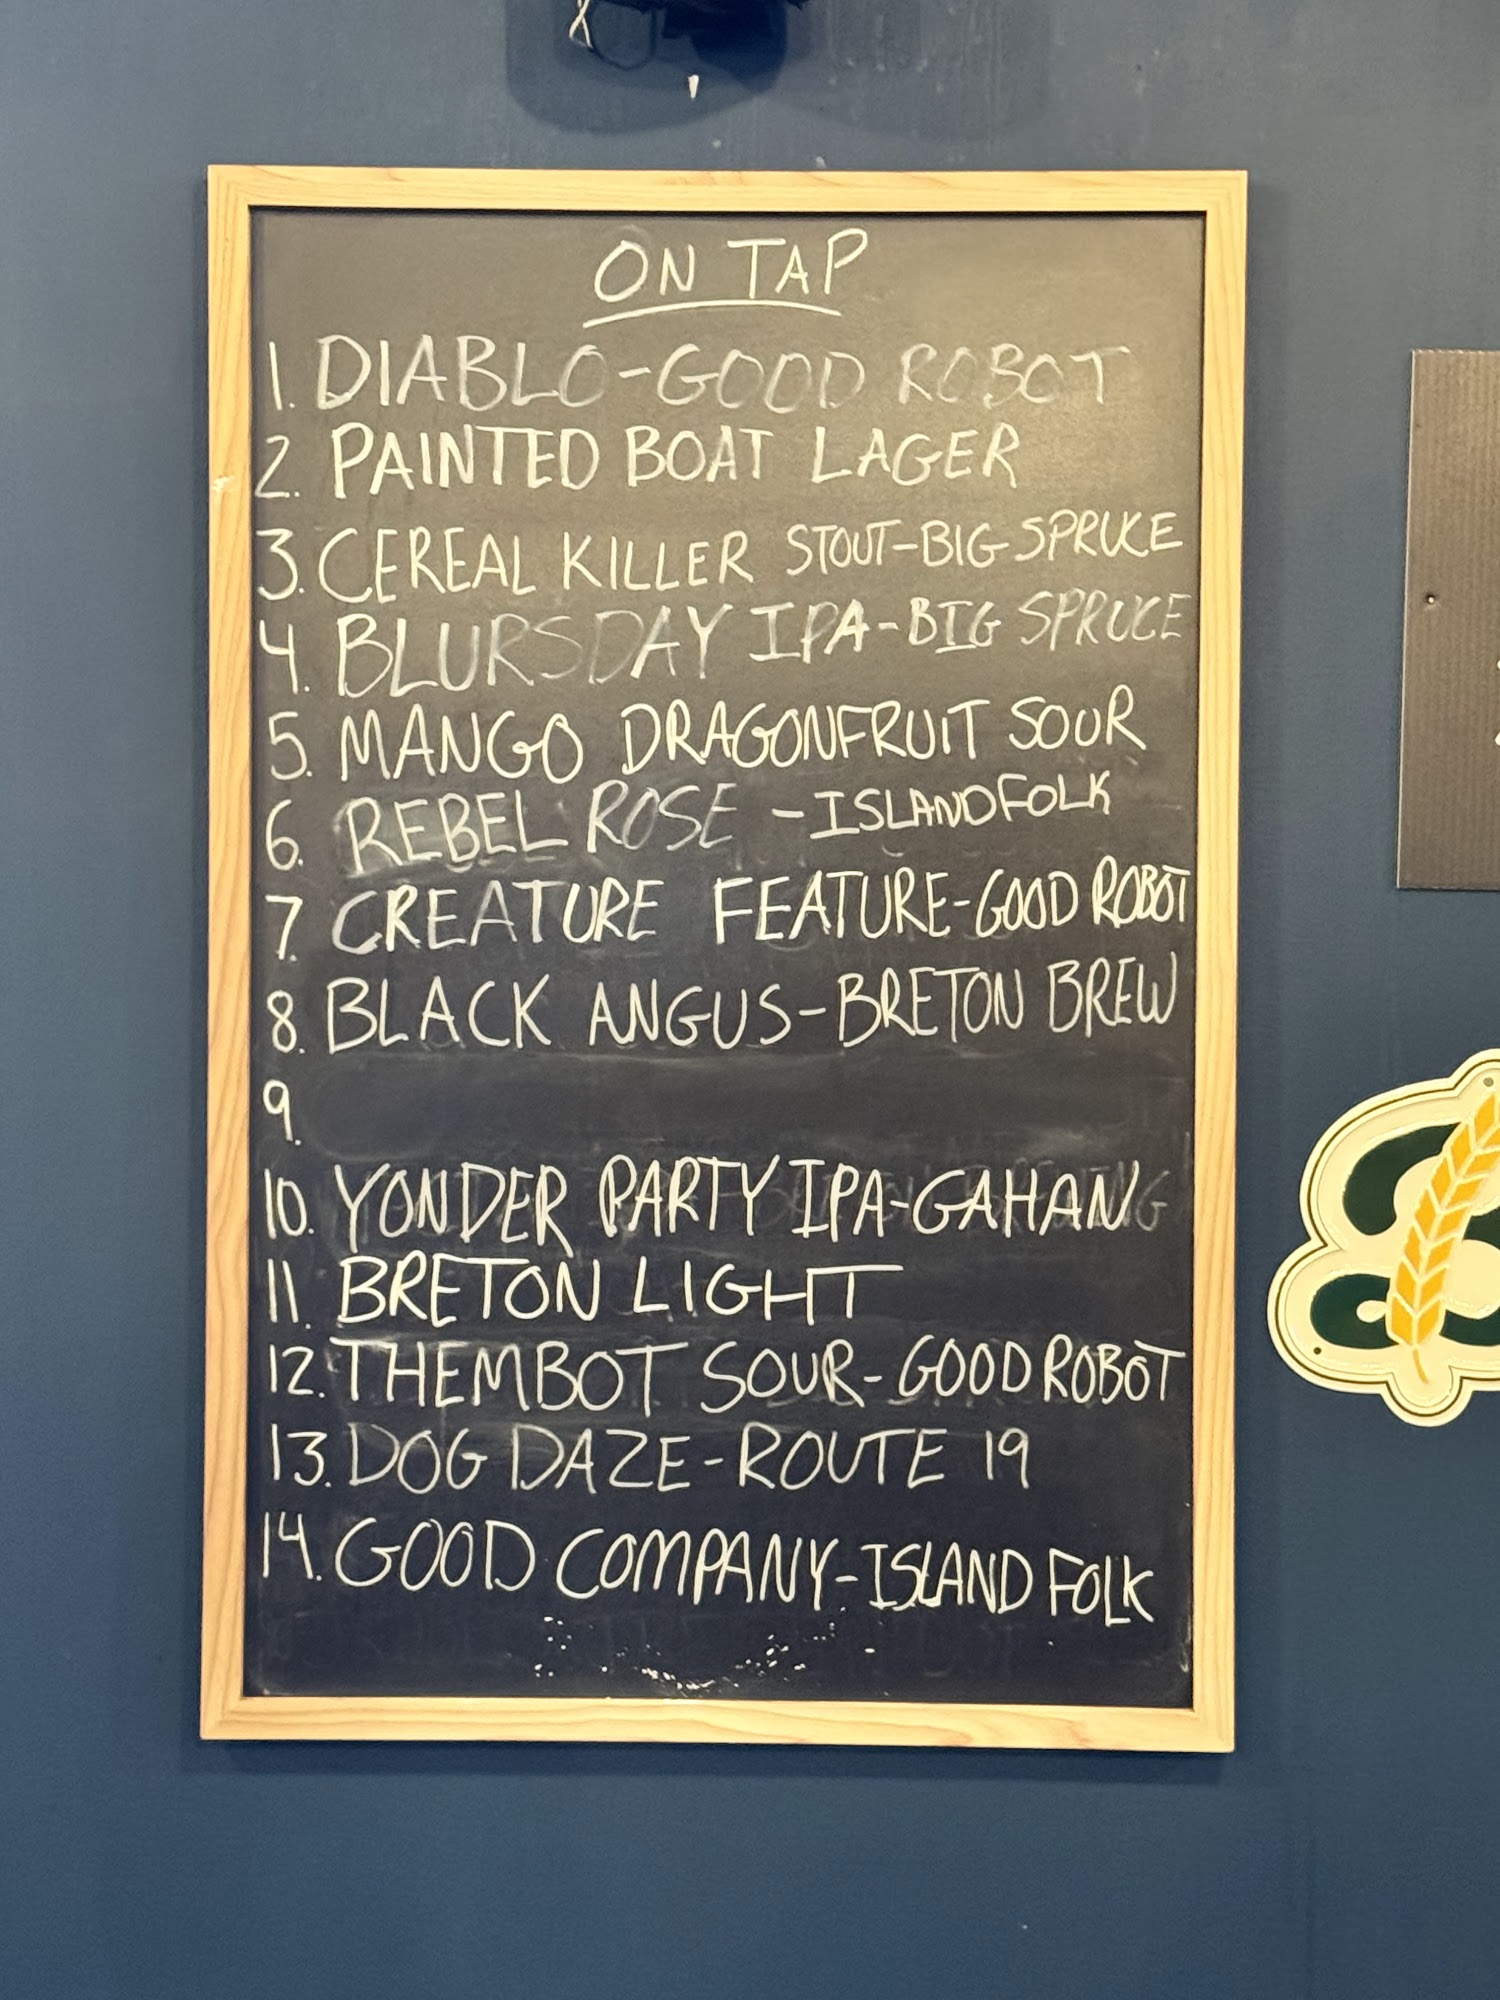 ON TAP
1. DIABLO-GOOD ROBOT
2. PAINTED BOAT LAGER
3. CEREAL KILLER STOUT-BIG SPRUCE
4. BLURSDAY IPA-BIG SPRUCE
5. MANGO DRAGONFRUIT SOUR
6. REBEL ROSE - ISLAND FOLK
7. CREATURE FEATURE-GOOD ROBOT
8. BLACK ANGUS-BRETON BREW
9.
10. YONDER PARTY IPA-GAHAN
11. BRETON LIGHT
12. THEMBOT SOUR-GOOD ROBOT
13. DOG DAZE-ROUTE 19
14. GOOD COMPANY-ISLAND FOLK